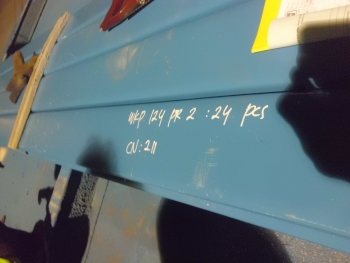 WKP 124 PR 2 : 24 pcs
CN: 211